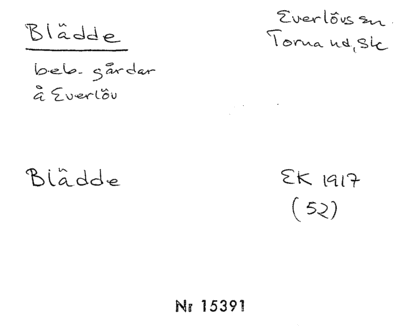 Blädde
Everlövs sn.
Torna hd, Sk
beb. gårdar
å Everlöv
Blädde
EK 1917
(52)
Nr 15391